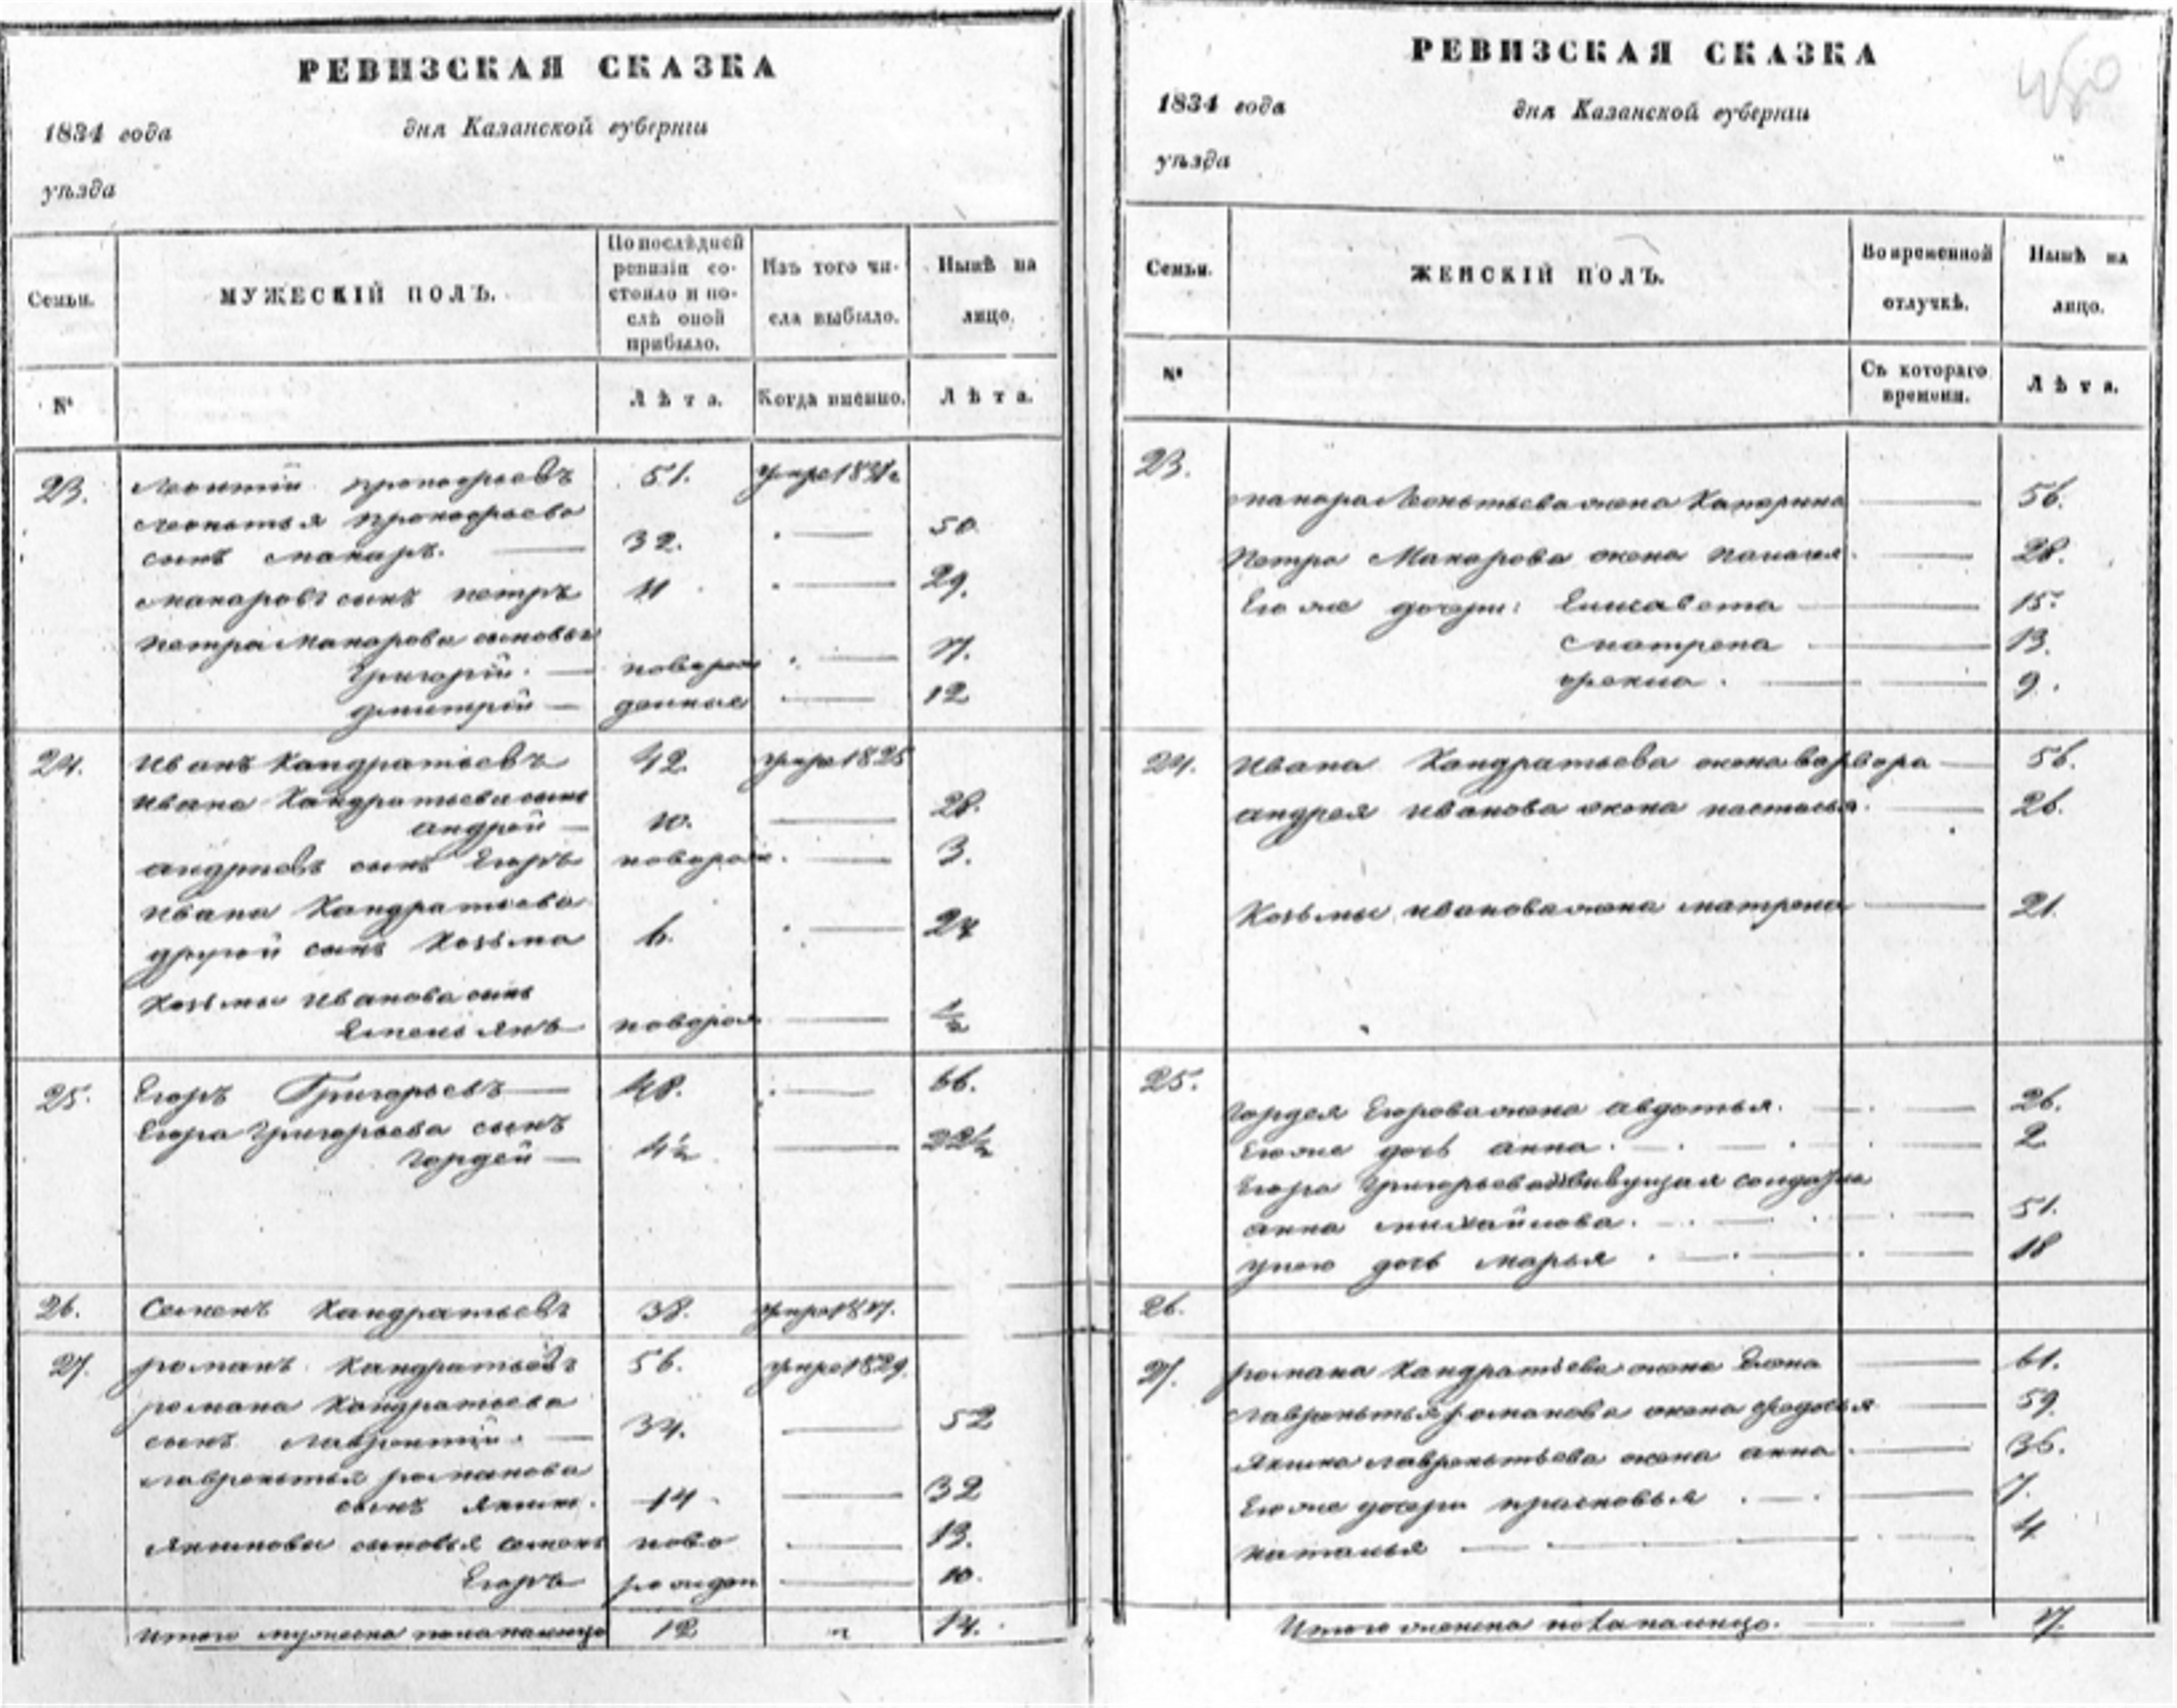 РЕВИЗСКАЯ СКАЗКА
1834 года
дня Казанской губерніи
уѣзда
Семьи.
МУЖЕСКІЙ ПОЛЪ.
По послѣдней ревизіи состояло и послѣ оной прибыло.
Изъ того числа выбыло.
Нынѣ на лицо.
№
Лѣта.
Когда именно.
Лѣта.
23. Леонтій прокофьевъ 51. умре 1831г
Леонтья Прокофьева
сынъ макаръ. 32. 50
макаровъ сынъ петръ 11 29.
петра Макарова сыновья
Григорій. новорож 17.
дмитрій денные 12
24. Иванъ Кандратьевъ 42. умре 1825
Ивана Кандратьева сынъ
андрей 10. 28.
андреевъ сынъ Егоръ новорож. 3.
Ивана Кандратьева
другой сынъ Козьма 6. 24
Козьмы Иванова сынъ
Емельянъ новорож ½
25. Егоръ Григорьевъ 48. 66.
Егора Григорьева сынъ
гордей 4½ 22½
26. Семенъ Кандратьевъ 38. умре 1817.
27. романъ Кандратьевъ 56. умре 1829.
романа Кандратьева
сынъ лаврентій. 34. 52
лаврентья романова
сынъ яким. 14 32
якимовы сыновья семенъ ново 13.
Егоръ рожден 10.
Итого мужеска пола налицо 12 14.
РЕВИЗСКАЯ СКАЗКА
450
1834 года
дня Казанской губерніи
уѣзда
Семьи.
ЖЕНСКІЙ ПОЛЪ.
Во временной отлучкѣ.
Нынѣ на лицо.
№
Съ котораго времени.
Лѣта.
23.
макара Леонтьева жена Катерина 56.
Петра Макарова жена Палагея 28.
Его же дочери: Елисавета 15.
Матрена 13.
9.
24. Ивана Кандратьева жена варвара 56.
андрея Иванова жена настасья. 26.
Козьмы иванова жена матрена 21.
25.
гордея Егорова жена авдотья. 26.
Его же дочь анна. 2
Егора Григорьева солдатка
анна михайлова. 51.
у нею дочь марья 18
26.
27. романа Кандратьева жена Елена 61.
лаврентья романова жена федосья 59.
Якима лаврентьева жена анна 35.
Его же дочери прасковья 7.
наталья 4
Итого женска пола налицо. 17.